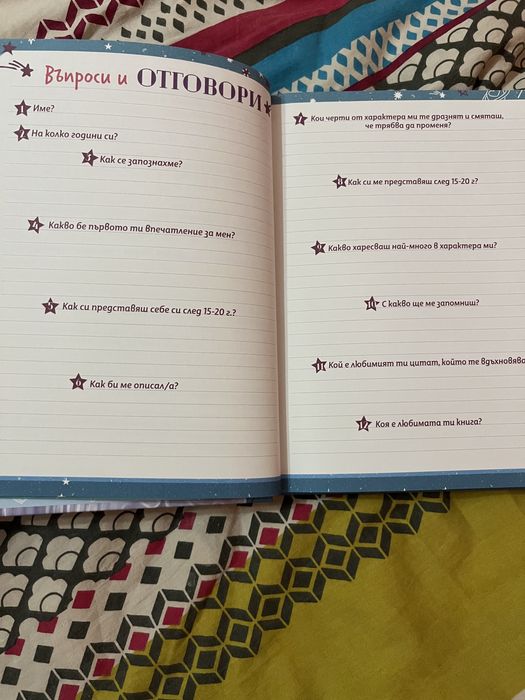 Въпроси и ОТГОВОРИ
1 Име?
2 На колко години си?
3 Как се запознахме?
4 Какво бе първото ти впечатление за мен?
5 Как си представяш себе си след 15-20 г.?
6 Как би ме описал/а?
7 Кои черти от характера ми те дразнят и смяташ,
че трябва да променя?
8 Как си ме представяш след 15-20 г.?
9 Какво харесваш най-много в характера ми?
10 С какво ще ме запомниш?
11 Кой е любимият ти цитат, който те вдъхновява
12 Коя е любимата ти книга?